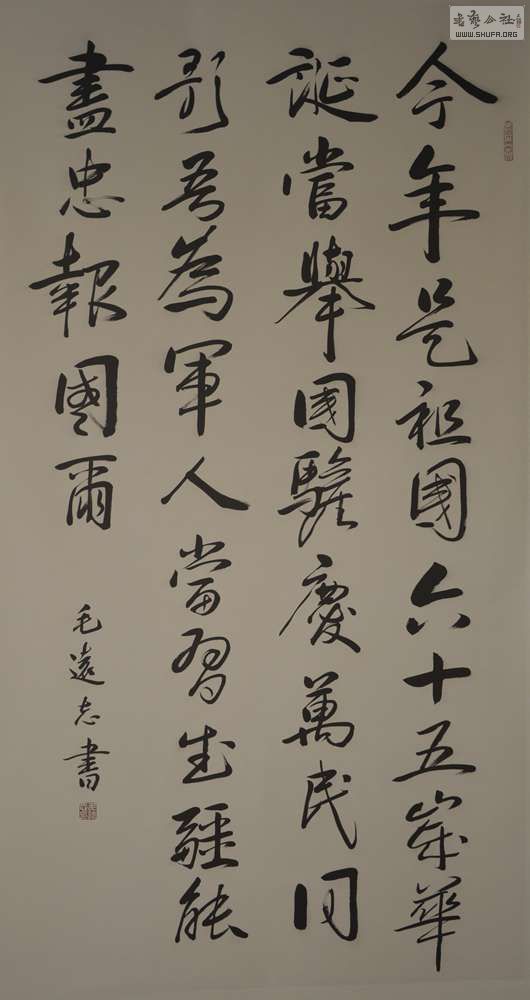 今年是祖國六十五歲華
誕當舉國驩慶萬民同
歌吾為軍人當習武疆能
盡忠報國爾
毛遠志書
書藝公社
WWW.SHUFA.ORG